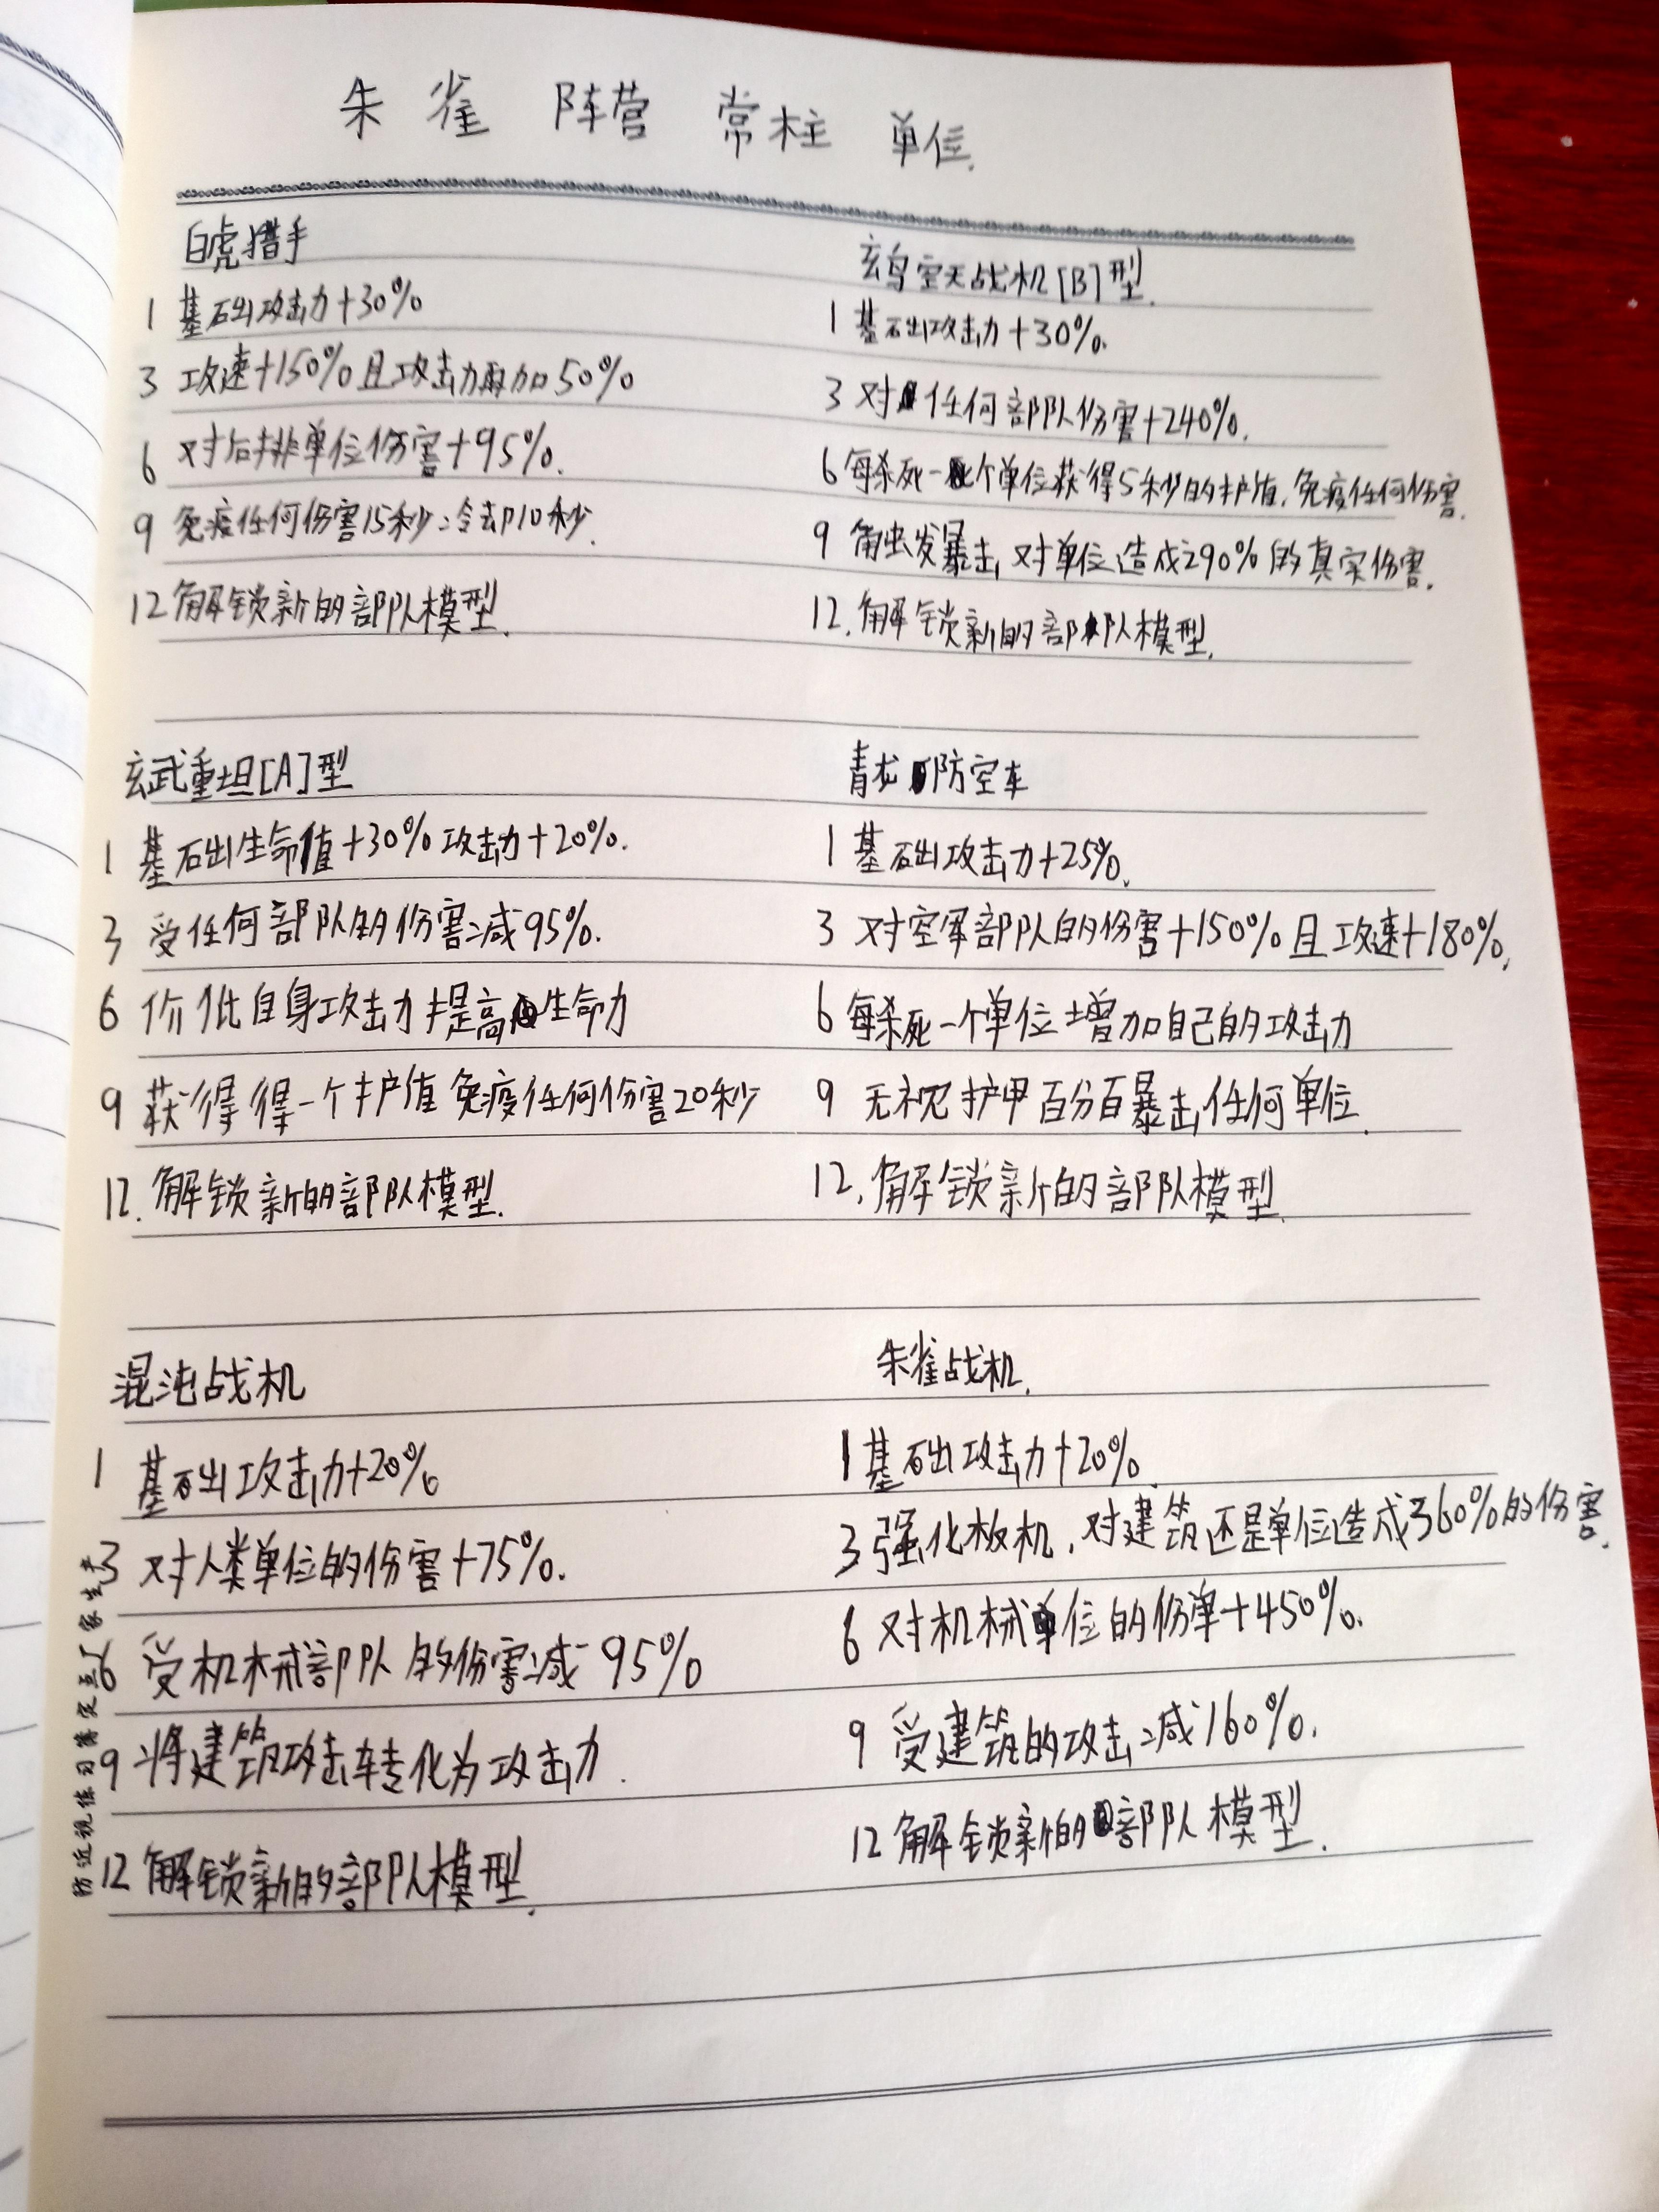 朱雀 阵营 常柱 单位.
白虎猎手
1 基础攻击力+30%
3 攻速+150%且攻击力再加50%
6 对后排单位伤害+95%.
9 免疫任何伤害15秒:冷却10秒.
12 解锁新的部队模型.
玄鸟空天战机[B]型.
1 基础攻击力+30%.
3 对任何部队伤害+240%.
6 每杀死一个单位获得5秒的护值,免疫任何伤害.
9 触发暴击,对单位造成290%的真实伤害.
12.解锁新的部队模型.
玄武重坦[A]型
1 基础生命值+30%攻击力+20%.
3 受任何部队的伤害减95%.
6 价低自身攻击力提高生命力
9 获得得一个护值 免疫任何伤害20秒
12.解锁新的部队模型.
青龙防空车
1 基础攻击力+25%.
3 对空军部队的伤害+150%且攻速+180%.
6 每杀死一个单位增加自己的攻击力
9 无视护甲百分百暴击任何单位.
12.解锁新的部队模型.
混沌战机
1 基础攻击力+20%
3 对人类单位的伤害+75%.
6 受机械部队的伤害减95%
9 将建筑攻击转化为攻击力.
12 解锁新的部队模型.
朱雀战机.
1 基础攻击力+20%.
3 强化板机.对建筑还是单位造成360%的伤害.
6 对机械单位的伤单+450%.
9 受建筑的攻击减160%.
12 解锁新的部队模型.